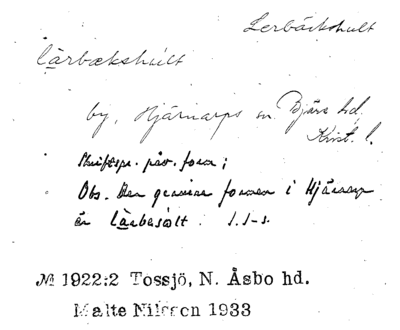 Lerbäckshult
lärbækshult
by, Hjärnarps sn. Bjäre hd.
Krist. l.
påv. form;
Obs. Den genuina formen i Hjärnarp
är lärbesölt. s. s-s.
№ 1922:2 Tossjö, N. Åsbo hd.
Malte Nilsson 1933